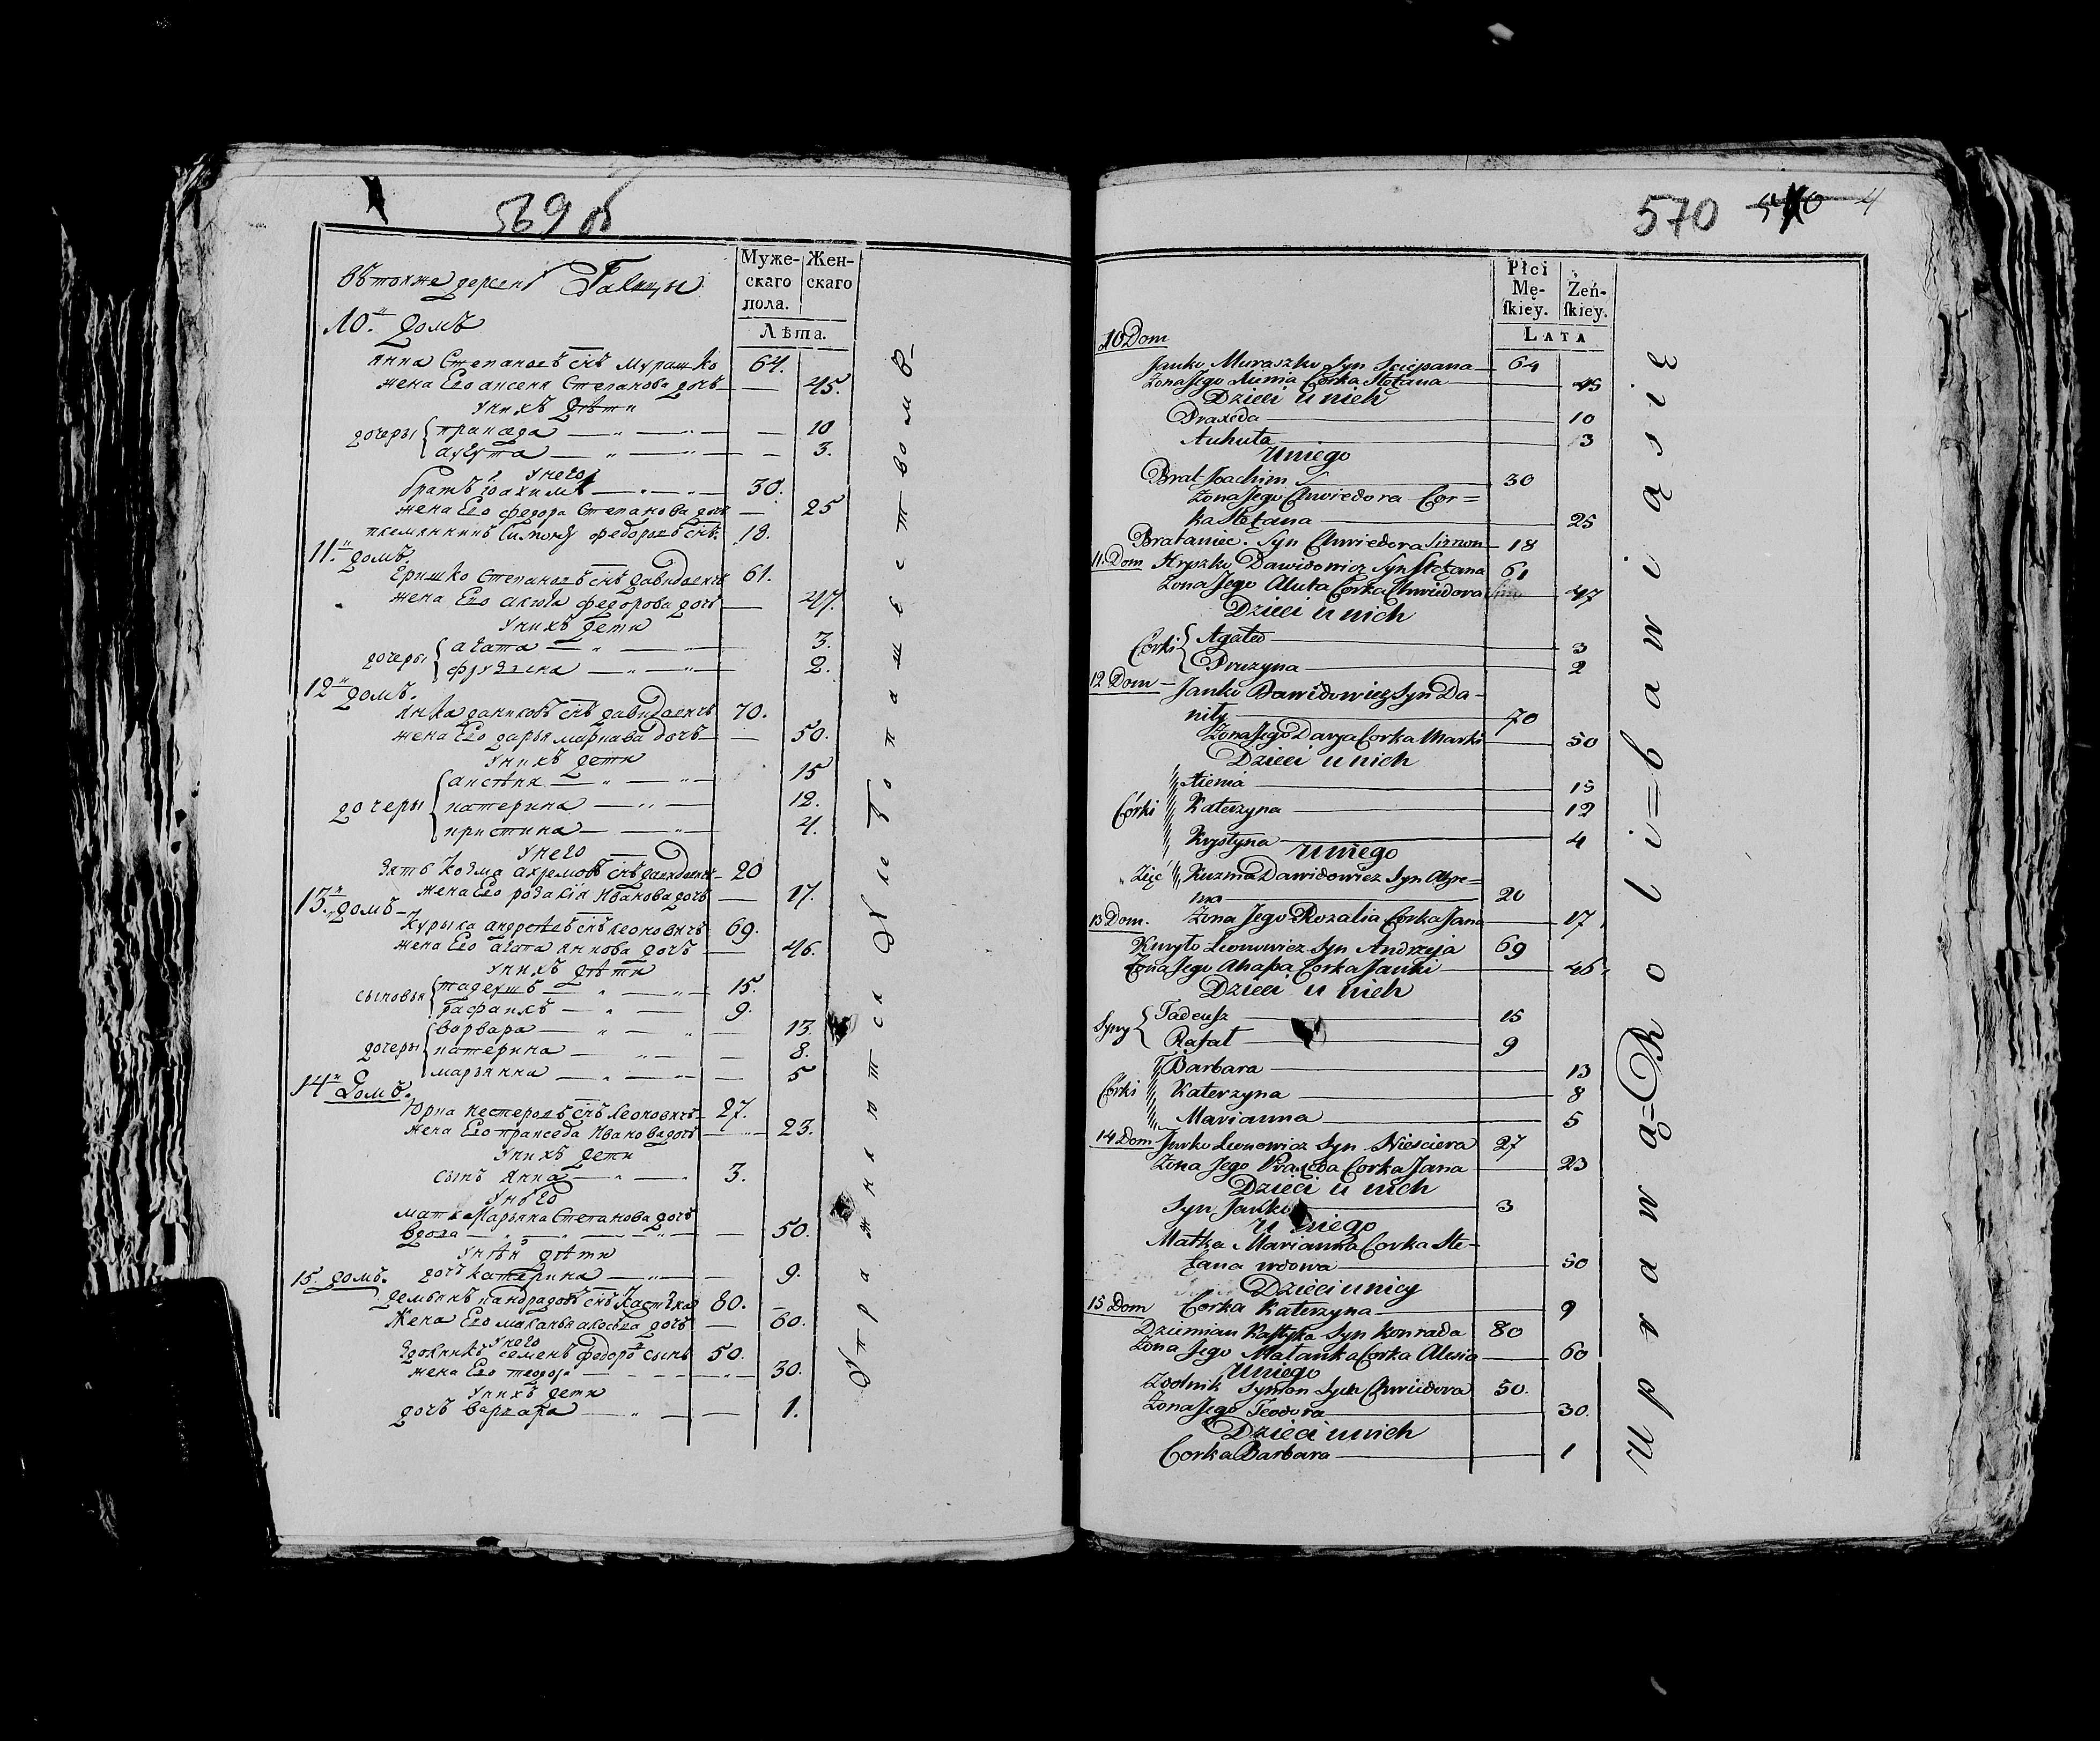 569 об
Муже-
скаго
пола.
Жен-
скаго
Лѣта.
въ тойже деревнѣ Галицы
10.й домъ
Янка Степановъ снъ Мурашко 64.
жена Его аксеня Степанова дочъ 45.
У нихъ дѣти
дочеры
праксѣда 10
агута 3.
У него
братъ іоахимъ 30.
жена Его федора Степанова дочъ 25
племянникъ Симонъ федоровъ снъ 18.
11.й домъ.
Гришко Степановъ снъ давидовичъ 61.
жена Его федорова дочъ 47.
У нихъ дети
дочеры
агата 3.
фрузына 2.
12й домъ.
Янка даниловъ снъ давидовичъ 70.
жена Его дарья маркава дочъ 50.
У нихъ дети
дочеры
аксѣня 15
катерина 12.
кристина 4.
У него
зять козма ахремовъ снъ давидовичъ 20
жена Его розалія Иванова дочъ 17.
13.й домъ
Курыла андреевъ снъ леоновичъ 69.
жена Его агата янкова дочъ 46.
У нихъ дѣти
сыновья
тадеушъ 15.
рафаилъ 9.
дочеры
варвара 13.
катерина 8.
марьянна 5
14й Домъ.
Юрка нестеровъ снъ леоновичъ 27.
жена Его пракседа Иванова дочъ 23.
У нихъ дети
сынъ Янка 3.
У него
мать Марьяна Степанова дочъ
вдова 50.
У нѣй дѣти
дочъ катерина 9.
15. домъ.
демьянъ кандрадовъ снъ 80.
Жена Его дочъ 60.
У него
семенъ федоровъ сынъ 50.
жена Его теодора 30.
У нихъ дети
дочъ варвара 1.
570 4
Płci
Mę-
ſkiey.
Żeń-
ſkiey.
LATA
10 Dom
Janko Muraszko Syn Sciepana 64
Zona Jego Aienia Corka Stefana 45
Dzieci u nich
Praxeda 10
Auhuta 3
U niego
Brat Joachim 30
Zona Jego Chwiedora Cor=
ka Stefana 25
Brataniec. Syn Chwiedora Simon 18
11. Dom Hryszko Dawidowicz Syn Stefana 61
Zona Jego Aluta Corka Chwiedora 47
Dzieci u nich
Corki
Agata 3
Pruzyna 2
12 Dom Janko Dawidowicz Syn Da-
niły 70
Zona Jego Darya Corka Marki 50
Dzieci u nich
Córki
Aienia 15
Katerzyna 12
Krystyna 4
U niego
Zięć Kuzma Dawidowicz Syn Ahre=
ma 20
13 Dom. Zona Jego Rozalia Corka Jana 17
Kuryło Leonowicz Syn Andrzeja 69
Zona Jego Ahapa Corka Janki 46
Dzieci u nich
Syny
Tadeuſz 15
Rafał 9
Córki
Barbara 13
Katerzyna 8
Marianna 5
14 Dom Jurko Leonowicz Syn Niesciera 27
Zona Jego Praxeda Corka Jana 23
Dzieci u nich
Syn Janko 3
U niego
Matka Marianna Corka Ste-
fana wdowa 50
Dzieci u niey
15 Dom Corka Katerzyna 9
Dziemian Kaſtyka Syn Konrada 80
Zona Jego Małanka Corka Alesia 60
U niego
Zdolnik Symon Syn Chwiedora 50.
Zona Jego Teodora 30.
Dzieci u nich
Corka Barbara 1
Uprawą=Roli=bawią się